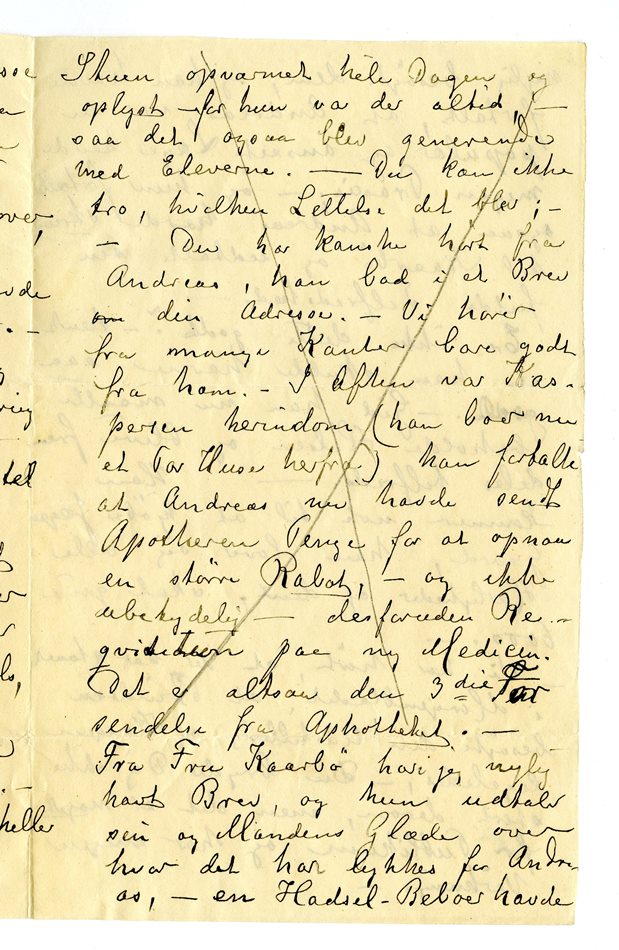 Stuen opvarmet hele Dagen og
oplyst – for hun var der altid, –
saa det ogsaa blev generende
med Eleverne. — Du kan ikke
tro, hvilken Lettelse det blev; –
– Du har kanske hørt fra
Andreas, han bad i et Brev
om din Adresse. – Vi hører
fra mange Kanter bare godt
fra ham. – I Aften var Kas-
persen herindom (han boer nu
et Par Huse herfra) han fortalte
at Andreas nu havde sendt
Apotheren Penge for at opnaa
en større Rabat, – og ikke
ubetydelig – desforuden Re-
qvisition paa ny Medicin.
Det er altsaa den 3die For
sendelse fra Aphotheket. –
Fra Fru Kaarbø har jeg nylig
havt Brev, og hun udtaler
sin og Mandens Glæde over
hvor det har lykkes for Andre-
as, – en Hadsel-Beboer havde